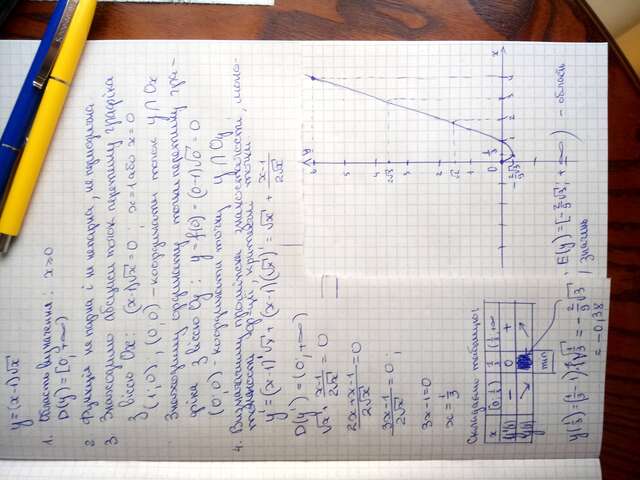 y=(x-1)√x
1. Область визначення: x≥0
D(y)=[0;∞)
2 Функція не парна і не непарна, не періодична
3 Знаходимо абсциси точок перетину графіка
з віссю Ox: (x-1)√x=0; x=1 або x=0
(1;0); (0;0) - координати точок y∩Ox
Знаходимо ординату точки перетину гра-
фіка з віссю Oy: y=f(0)=(0-1)√0=0
(0;0) - координати точки y∩Oy
4. Визначатимемо проміжки знакосталості, моно-
тонності функції, критичні точки
y'=(x-1)'√x+(x-1)(√x)'=√x+(x-1)/(2√x)
D(y')=(0;+∞)
√x+(x-1)/(2√x)=0
(2x+x-1)/(2√x)=0
(3x-1)/(2√x)=0;
3x-1=0
x=1/3
Складаємо таблицю:
x (0;1/3) 1/3 (1/3;∞)
f'(x) - 0 +
f(x) ↘ ↗
min
y(1/3)=(1/3-1)√(1/3)=-2/9√3
=-0,38
E(y)=[-2/9√3;+∞) - область
значень
y
6
5
4
2√3
2
√2
1
0
1/3
-2/9√3
2
3
4
x